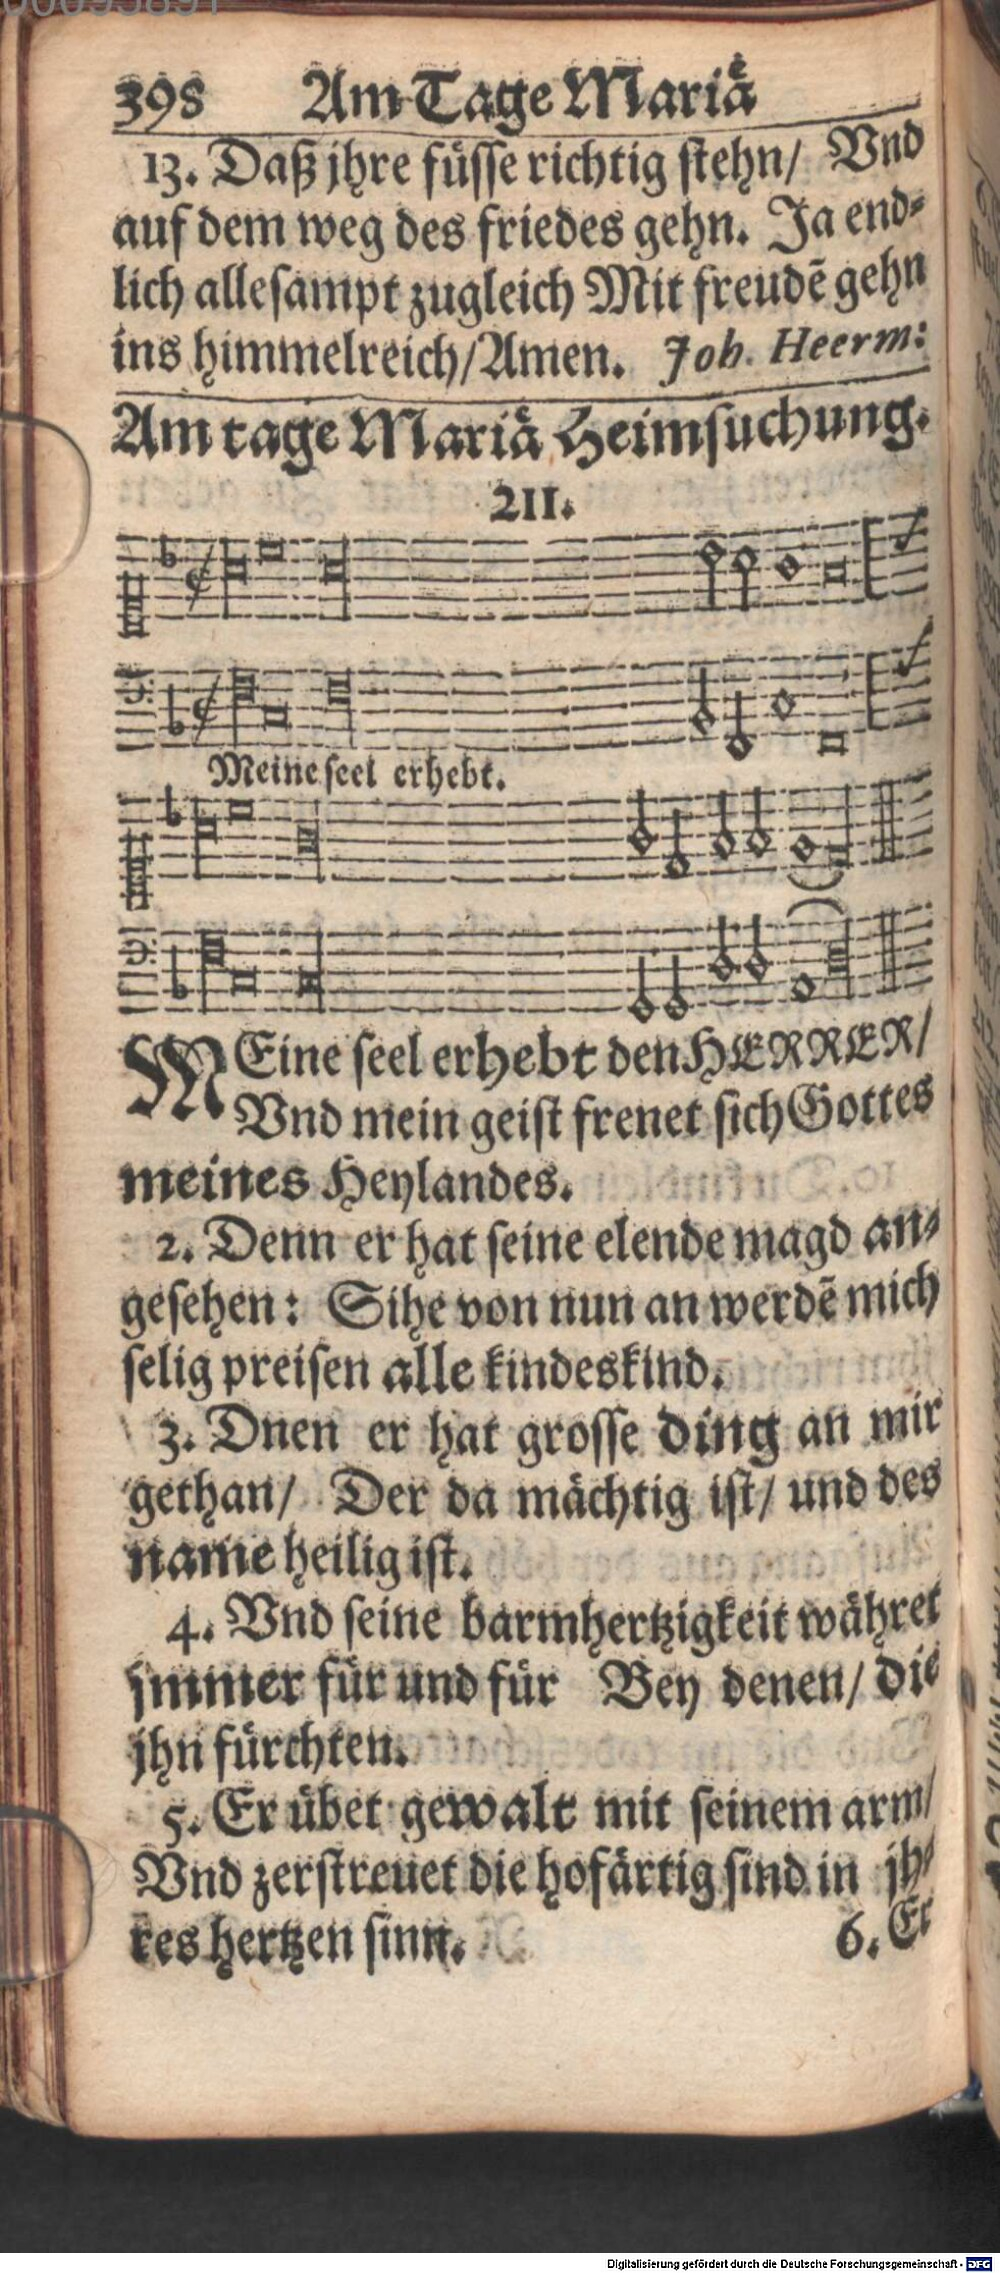 398 Am Tage Mariaͤ
13. Daß jhre fuͤsse richtig stehn/ Vnd
auf dem weg des friedes gehn. Ja end-
lich allesampt zugleich Mit freudẽ gehn
ins himmelreich/Amen. Joh. Heerm:
Am tage Mariaͤ Heimsuchung.
211.
Meine seel erhebt.
MEine seel erhebt den HERRER/
Vnd mein geist frenet sich Gottes
meines Heylandes.
2. Denn er hat seine elende magd an-
gesehen: Sihe von nun an werdẽ mich
selig preisen alle kindeskind.
3. Dnen er hat grosse ding an mir
gethan/ Der da maͤchtig ist/ und des
name heilig ist.
4. Vnd seine barmhertzigkeit waͤhret
jmmer fuͤr und fuͤr Bey denen/ die
jhn fuͤrchten.
5. Er uͤbet gewalt mit seinem arm/
Vnd zerstreuet die hofaͤrtig sind in jh-
res hertzen sinn. 6. Er
Digitalisierung gefördert durch die Deutsche Forschungsgemeinschaft - DFG